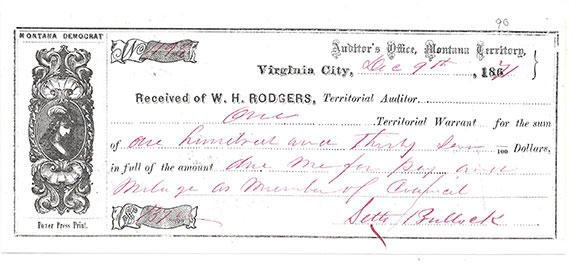 MONTANA DEMOCRAT
No
Auditor's Office, Montana Territory,
Virginia City, Dec 9th, 187
Received of W. H. RODGERS, Territorial Auditor
One Territorial Warrant for the sum
of one hundred and thirty Seven /100 Dollars,
in full of the amount due me for pay and
Milage as Member of Council
Seth Bullock
Power Press Print.